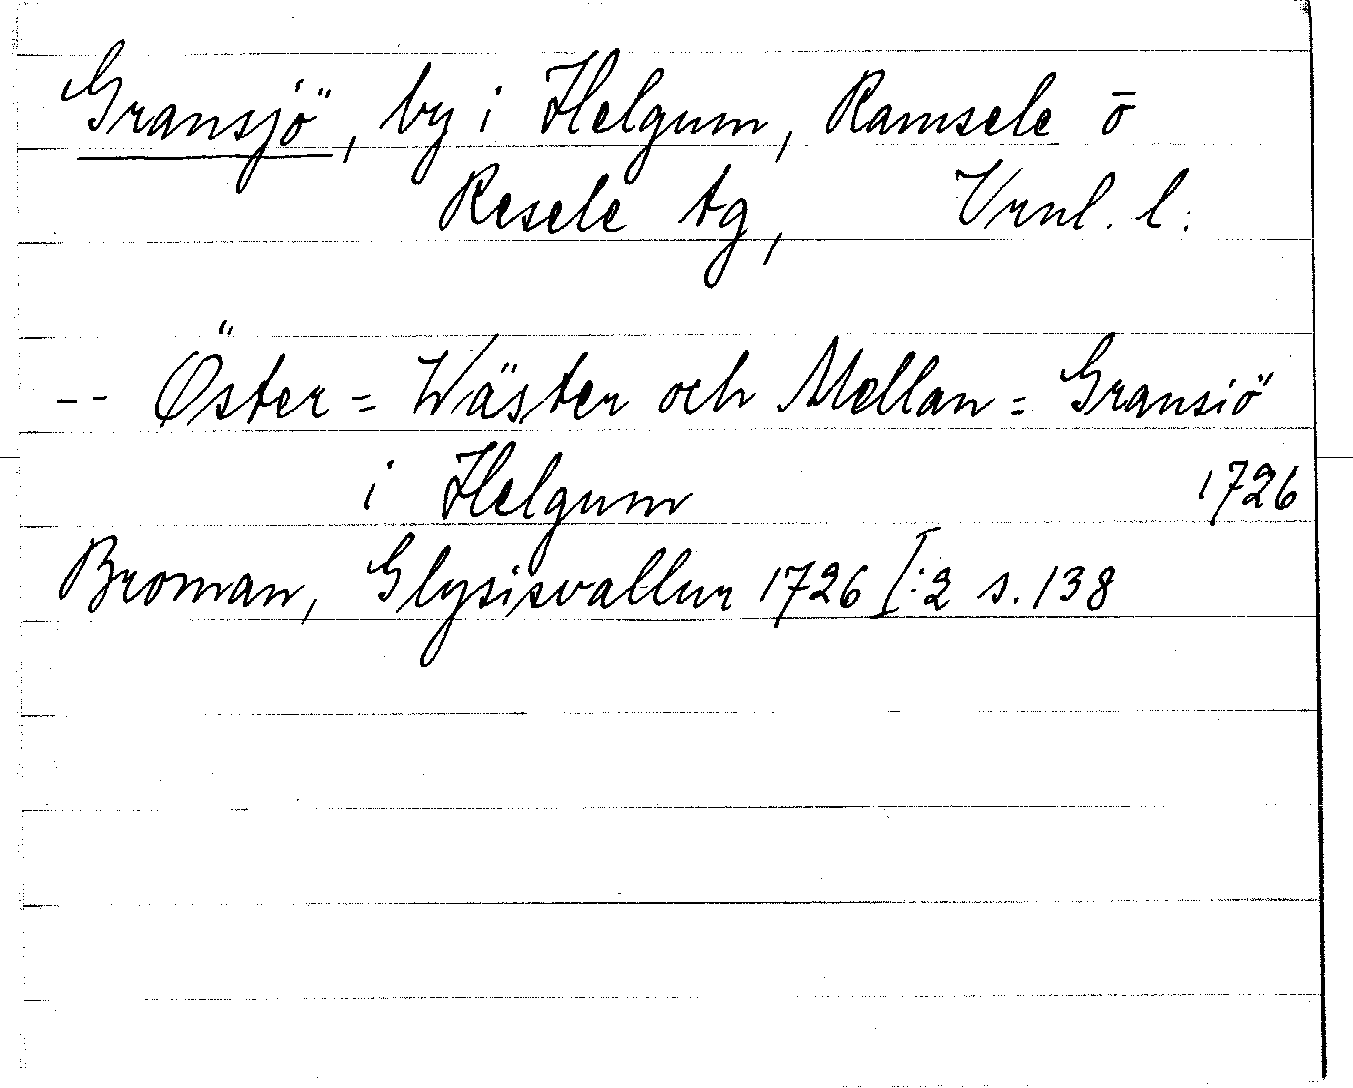 Gransjö, by i Helgum, Ramsele ō
Resele tg, Vrnl. l.
-- Öster= Wäster och Mellan= Gransiö
i Helgum 1726
Broman, Glysisvallur 1726 I:2 s. 138